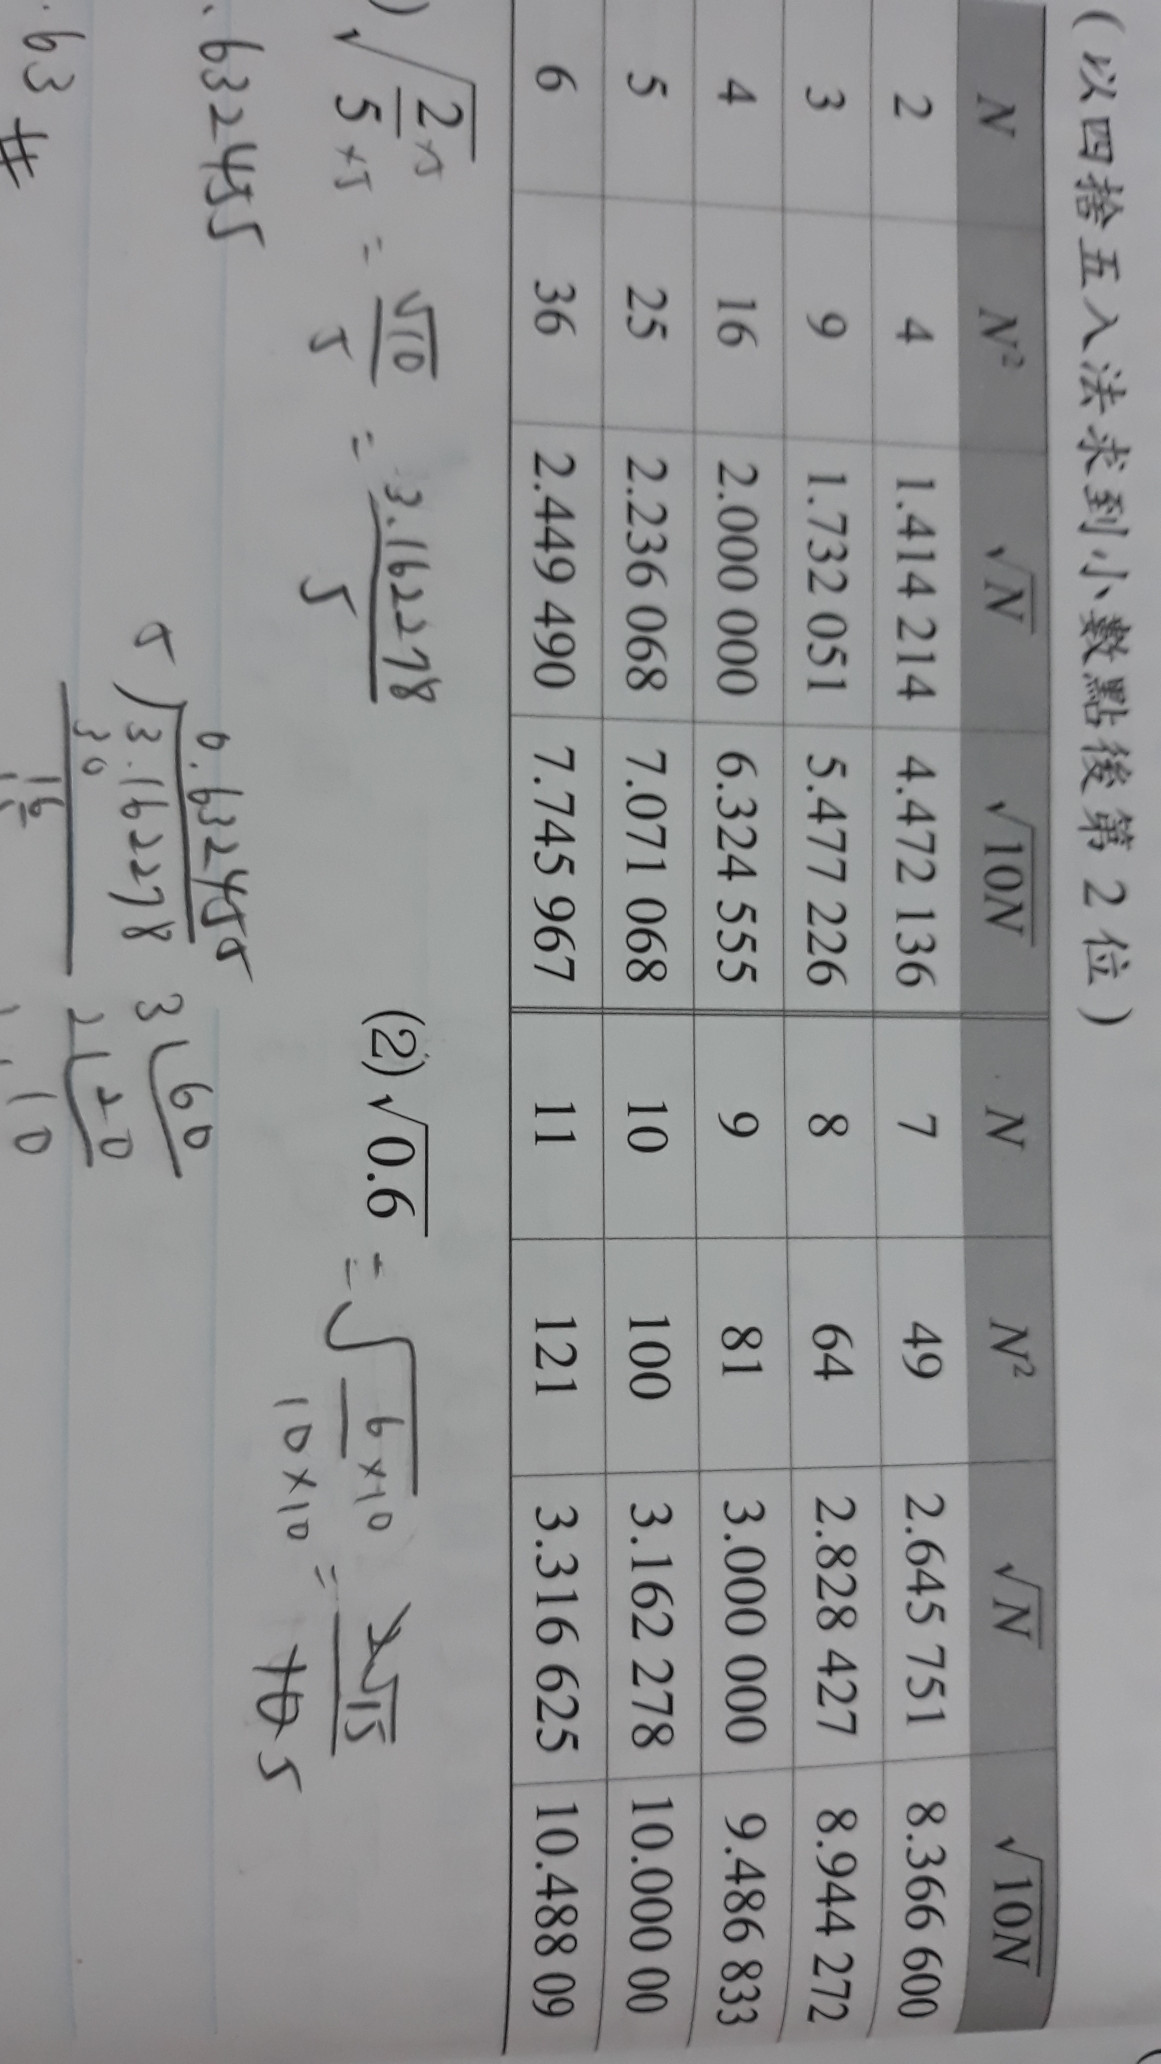 (以四捨五入法求到小數點後第2位)
N N² √N √10N N N² √N √10N
2 4 1.414 214 4.472 136 7 49 2.645 751 8.366 600
3 9 1.732 051 5.477 226 8 64 2.828 427 8.944 272
4 16 2.000 000 6.324 555 9 81 3.000 000 9.486 833
5 25 2.236 068 7.071 068 10 100 3.162 278 10.000 00
6 36 2.449 490 7.745 967 11 121 3.316 625 10.488 09
) √(2×5/5×5) = √10/5 = 3.162278/5
(2) √0.6 = √(6×10/10×10) = 2√15/10 5
.632455
0.632455
5)3.162278
30
16
3 60
2 20
10
.63 #